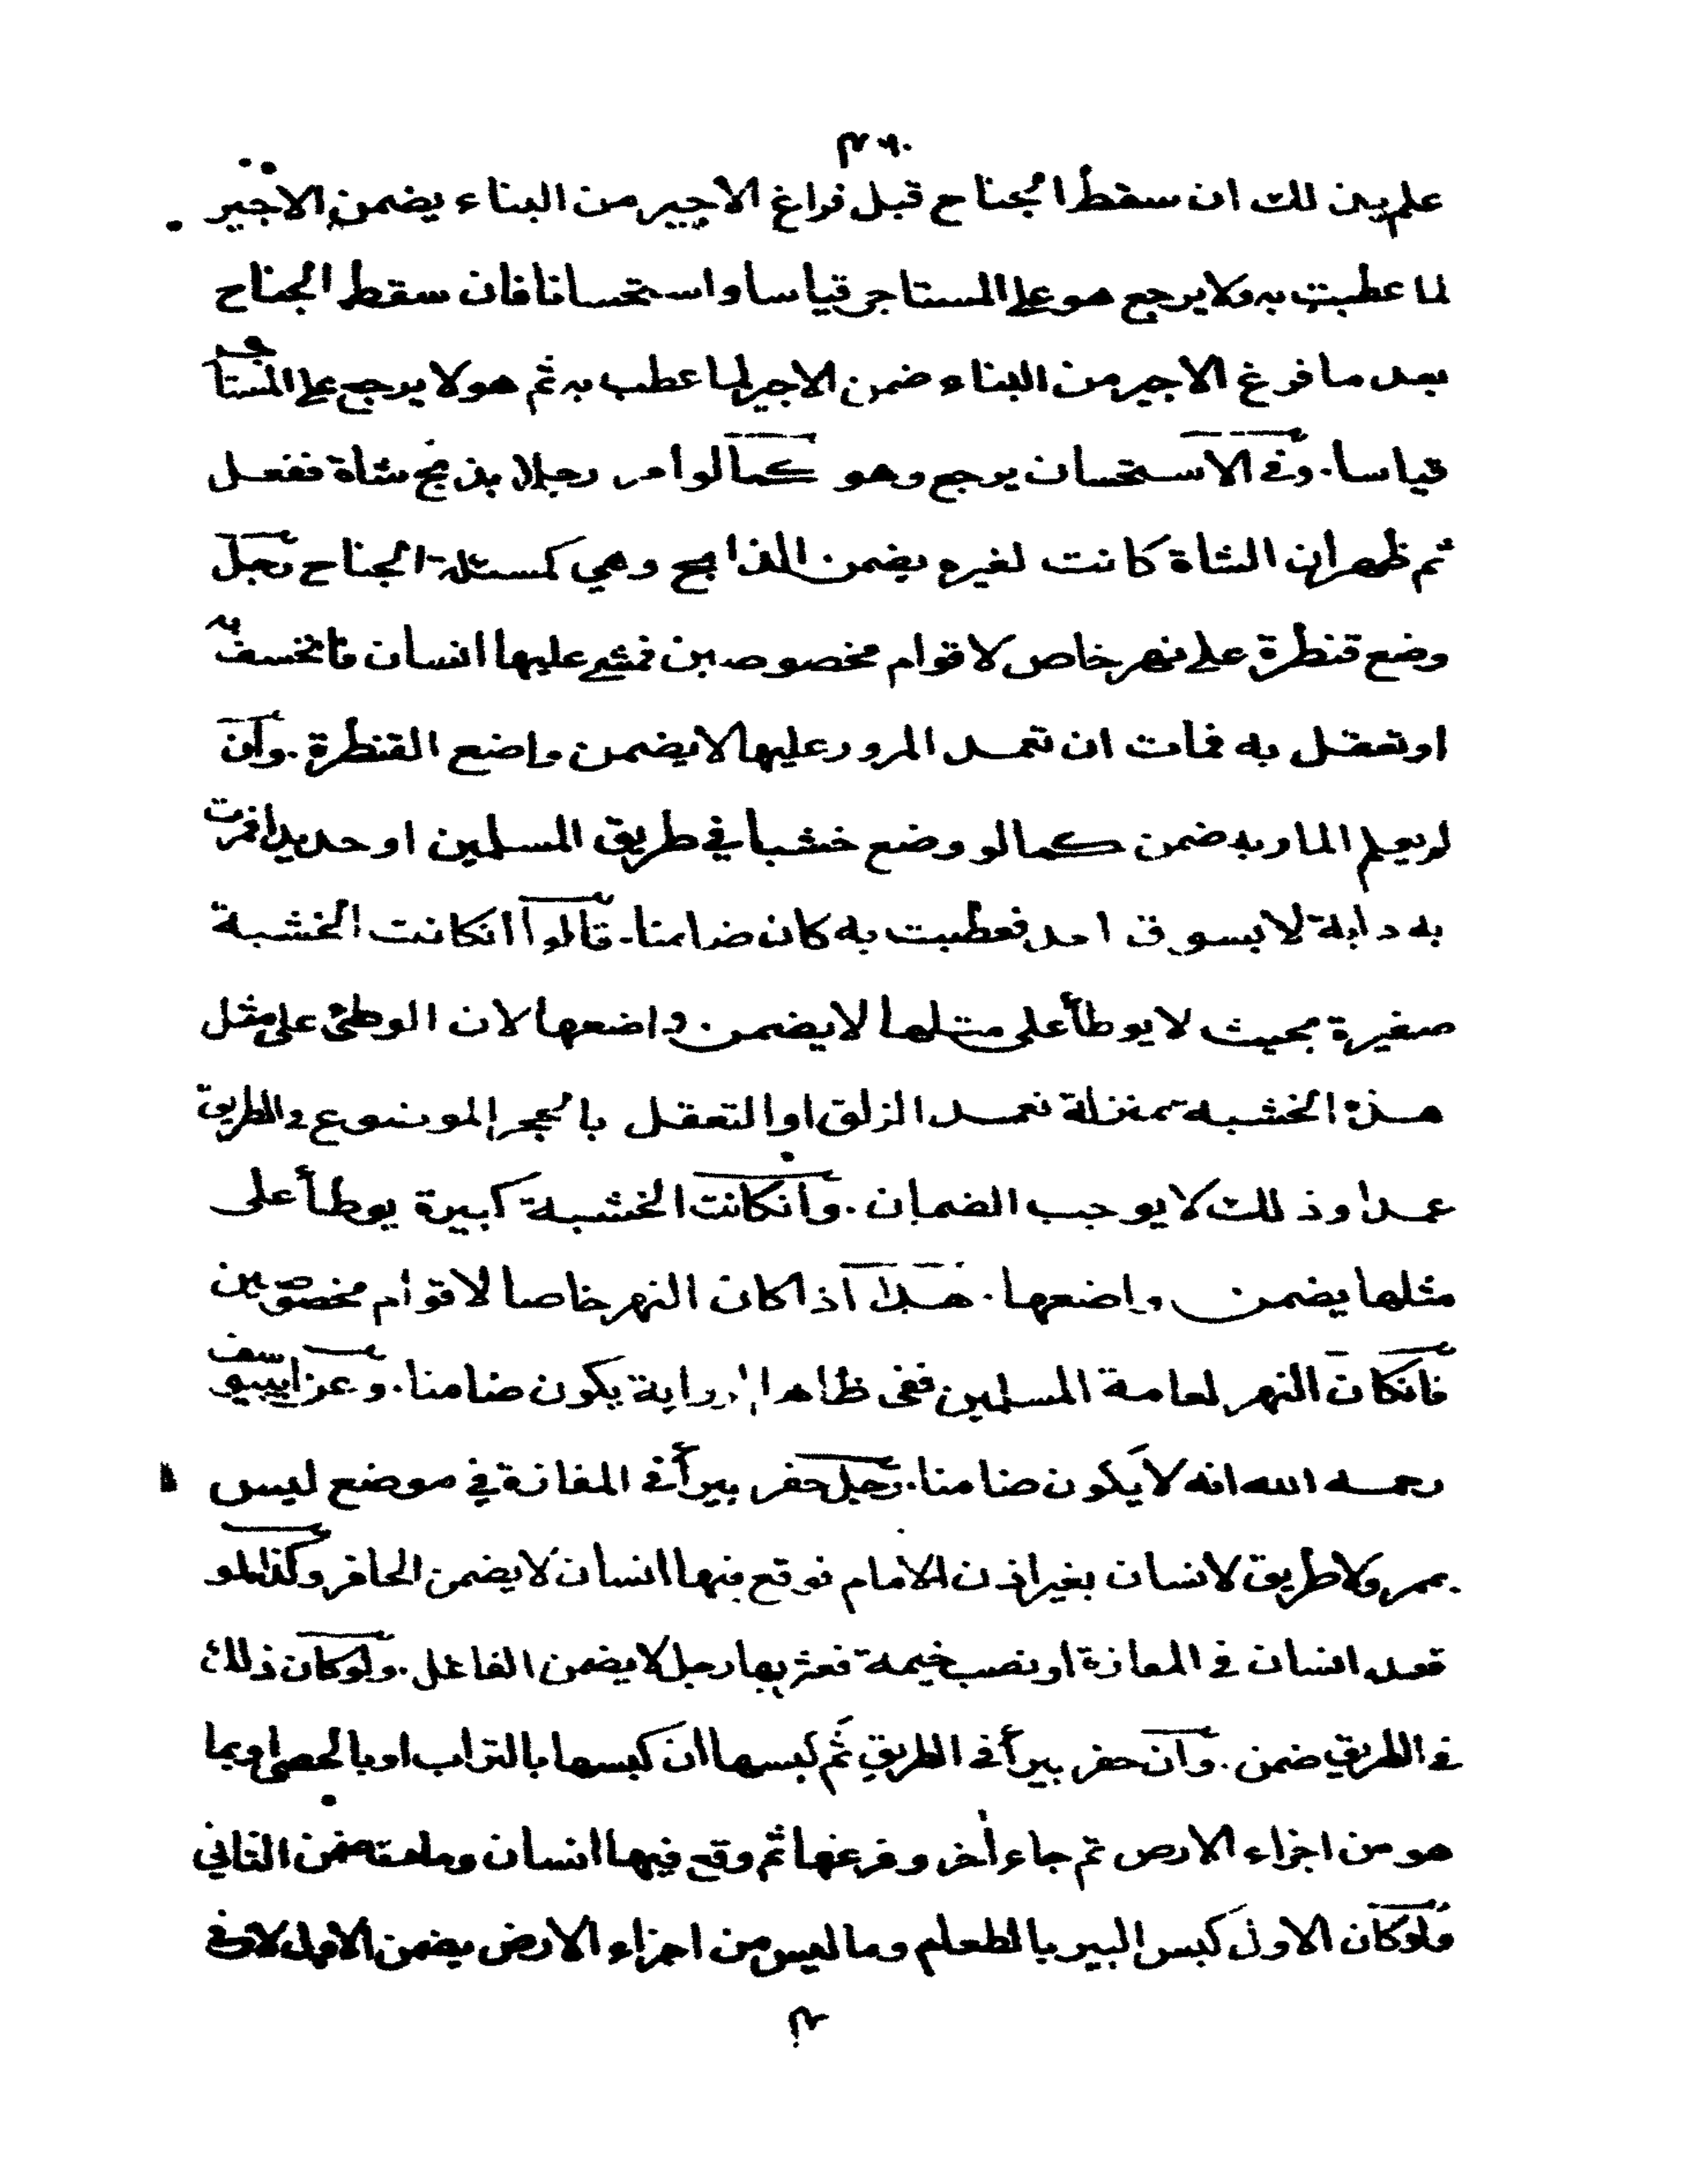 علم بذلك ان سقط الجناح قبل فراغ الاجير من البناء يضمن الاجير
لما عطبت به ولا يرجع هو على المستاجر قياسا واستحسانا فان سقط الجناح
بعد ما فرغ الاجير من البناء ضمن الاجير لما عطب به ثم هو لا يرجع على المستاجر
قياسا. وفى الاستحسان يرجع وهو كما لو امر رجلا بذبح شاة ففعل
ثم ظهر ان الشاة كانت لغيره يضمن الذابح وهي كمسئلة الجناح رجل
وضع قنطرة على نهر خاص لاقوام مخصوصين فمشى عليها انسان فانخسف به
او تعقل به فمات ان تعمد المرور عليها لا يضمن واضع القنطرة. وان
لم يعلم المار به ضمن كما لو وضع خشبا في طريق المسلمين او حديدا فمرت
به دابة لا بسوق احد فعطبت به كان ضامنا. قالوا انكانت الخشبة
صغيرة بحيث لا يوطأ على مثلها لا يضمن واضعها لان الوطئ على مثل
هذه الخشبة بمنزلة تعمد الزلق او التعقل بالحجر الموضوع فى الطريق
عمدا وذلك لا يوجب الضمان. وانكانت الخشبة كبيرة يوطأ على
مثلها يضمن واضعها. هذا اذا كان النهر خاصا لاقوام مخصوصين
فانكان النهر لعامة المسلمين ففى ظاهر الرواية يكون ضامنا. وعن ابييوسف
رحمه الله انه لا يكون ضامنا. رجل حفر بيرأ فى المفازة في موضع ليس
بممر ولا طريق لانسان بغير اذن الامام فوقع فيها انسان لا يضمن الحافر وكذا لو
قعد انسان فى المفازة او نصب خيمة فعثر بها رجل لا يضمن الفاعل. ولو كان ذلك
فى الطريق ضمن. وان حفر بيرأ فى الطريق ثم كبسها ان كبسها بالتراب او بالحصى او بما
هو من اجزاء الارض ثم جاء أخر وفرغها ثم وقع فيها انسان ومات ضمن الثاني
ولو كان الاول كبس البير بالطعام وما ليس من اجزاء الارض يضمن الاول لان فى